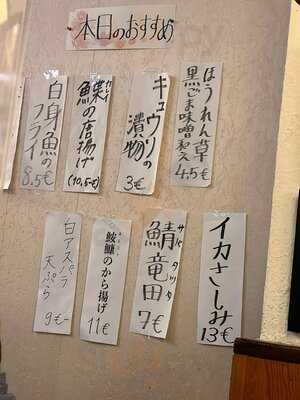 本日のおすすめ
ほうれん草
黒ごま味噌和え
4.5€
キュウリの
漬物
3€
カレイ
鰈の唐揚げ
(10,5€)
白身魚の
フライ
8.5€
イカさしみ
13€
サバタツタ
鯖竜田
7€
あんこう
鮟鱇のから揚げ
11€
白アスパラ
天ぷら
9€